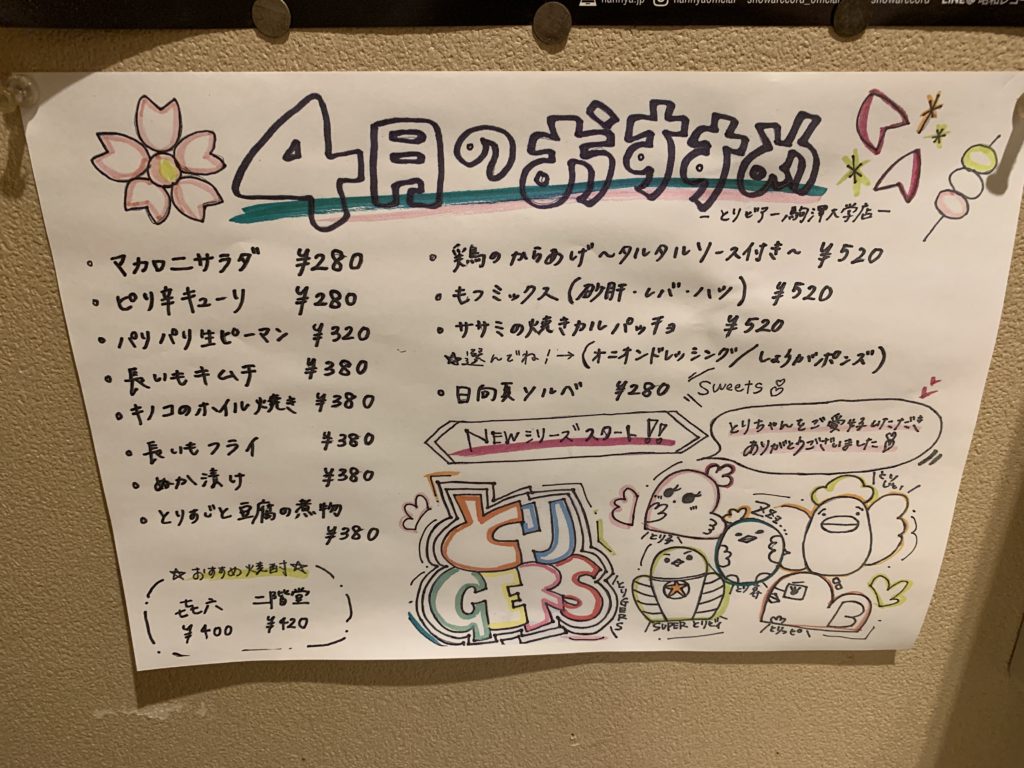 hannya.jp hannyaofficial showarecord_official showarecord
4月のおすすめ
ーとりビアー駒澤大学店ー
・マカロニサラダ ¥280
・ピリ辛キューリ ¥280
・パリパリ生ピーマン ¥320
・長いもキムチ ¥380
・キノコのホイル焼き ¥380
・長いもフライ ¥380
・ぬか漬け ¥380
・とりすじと豆腐の煮物
¥380
☆おすすめ焼酎☆
七七六 二階堂
¥400 ¥420
・鶏のからあげ〜タルタルソース付き〜 ¥520
・もつミックス(砂肝・レバ・ハツ) ¥520
・ササミの焼きカルパッチョ ¥520
☆選んでね!→(オニオンドレッシング/しょうがポンズ)
・日向夏ソルベ ¥280 Sweets
NEWシリーズスタート!!
とりちゃんをご愛好いただき、
ありがとうございました
とり
GERS
とりGERS
とり子
とりじい
SUPERとりビィ
とりっぴ